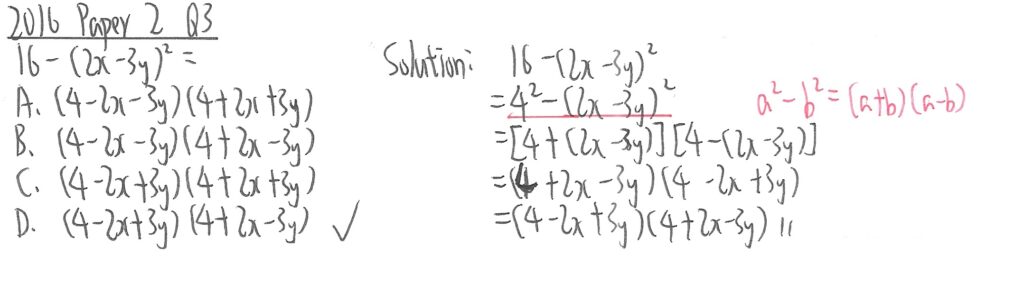 2016 Paper 2 Q3
16-(2x-3y)²=
A. (4-2x-3y)(4+2x+3y)
B. (4-2x-3y)(4+2x-3y)
C. (4-2x+3y)(4+2x+3y)
D. (4-2x+3y)(4+2x-3y) ✓
Solution: 16-(2x-3y)²
=4²-(2x-3y)² a²-b²=(a+b)(a-b)
=[4+(2x-3y)][4-(2x-3y)]
=(4+2x-3y)(4-2x+3y)
=(4-2x+3y)(4+2x-3y) //